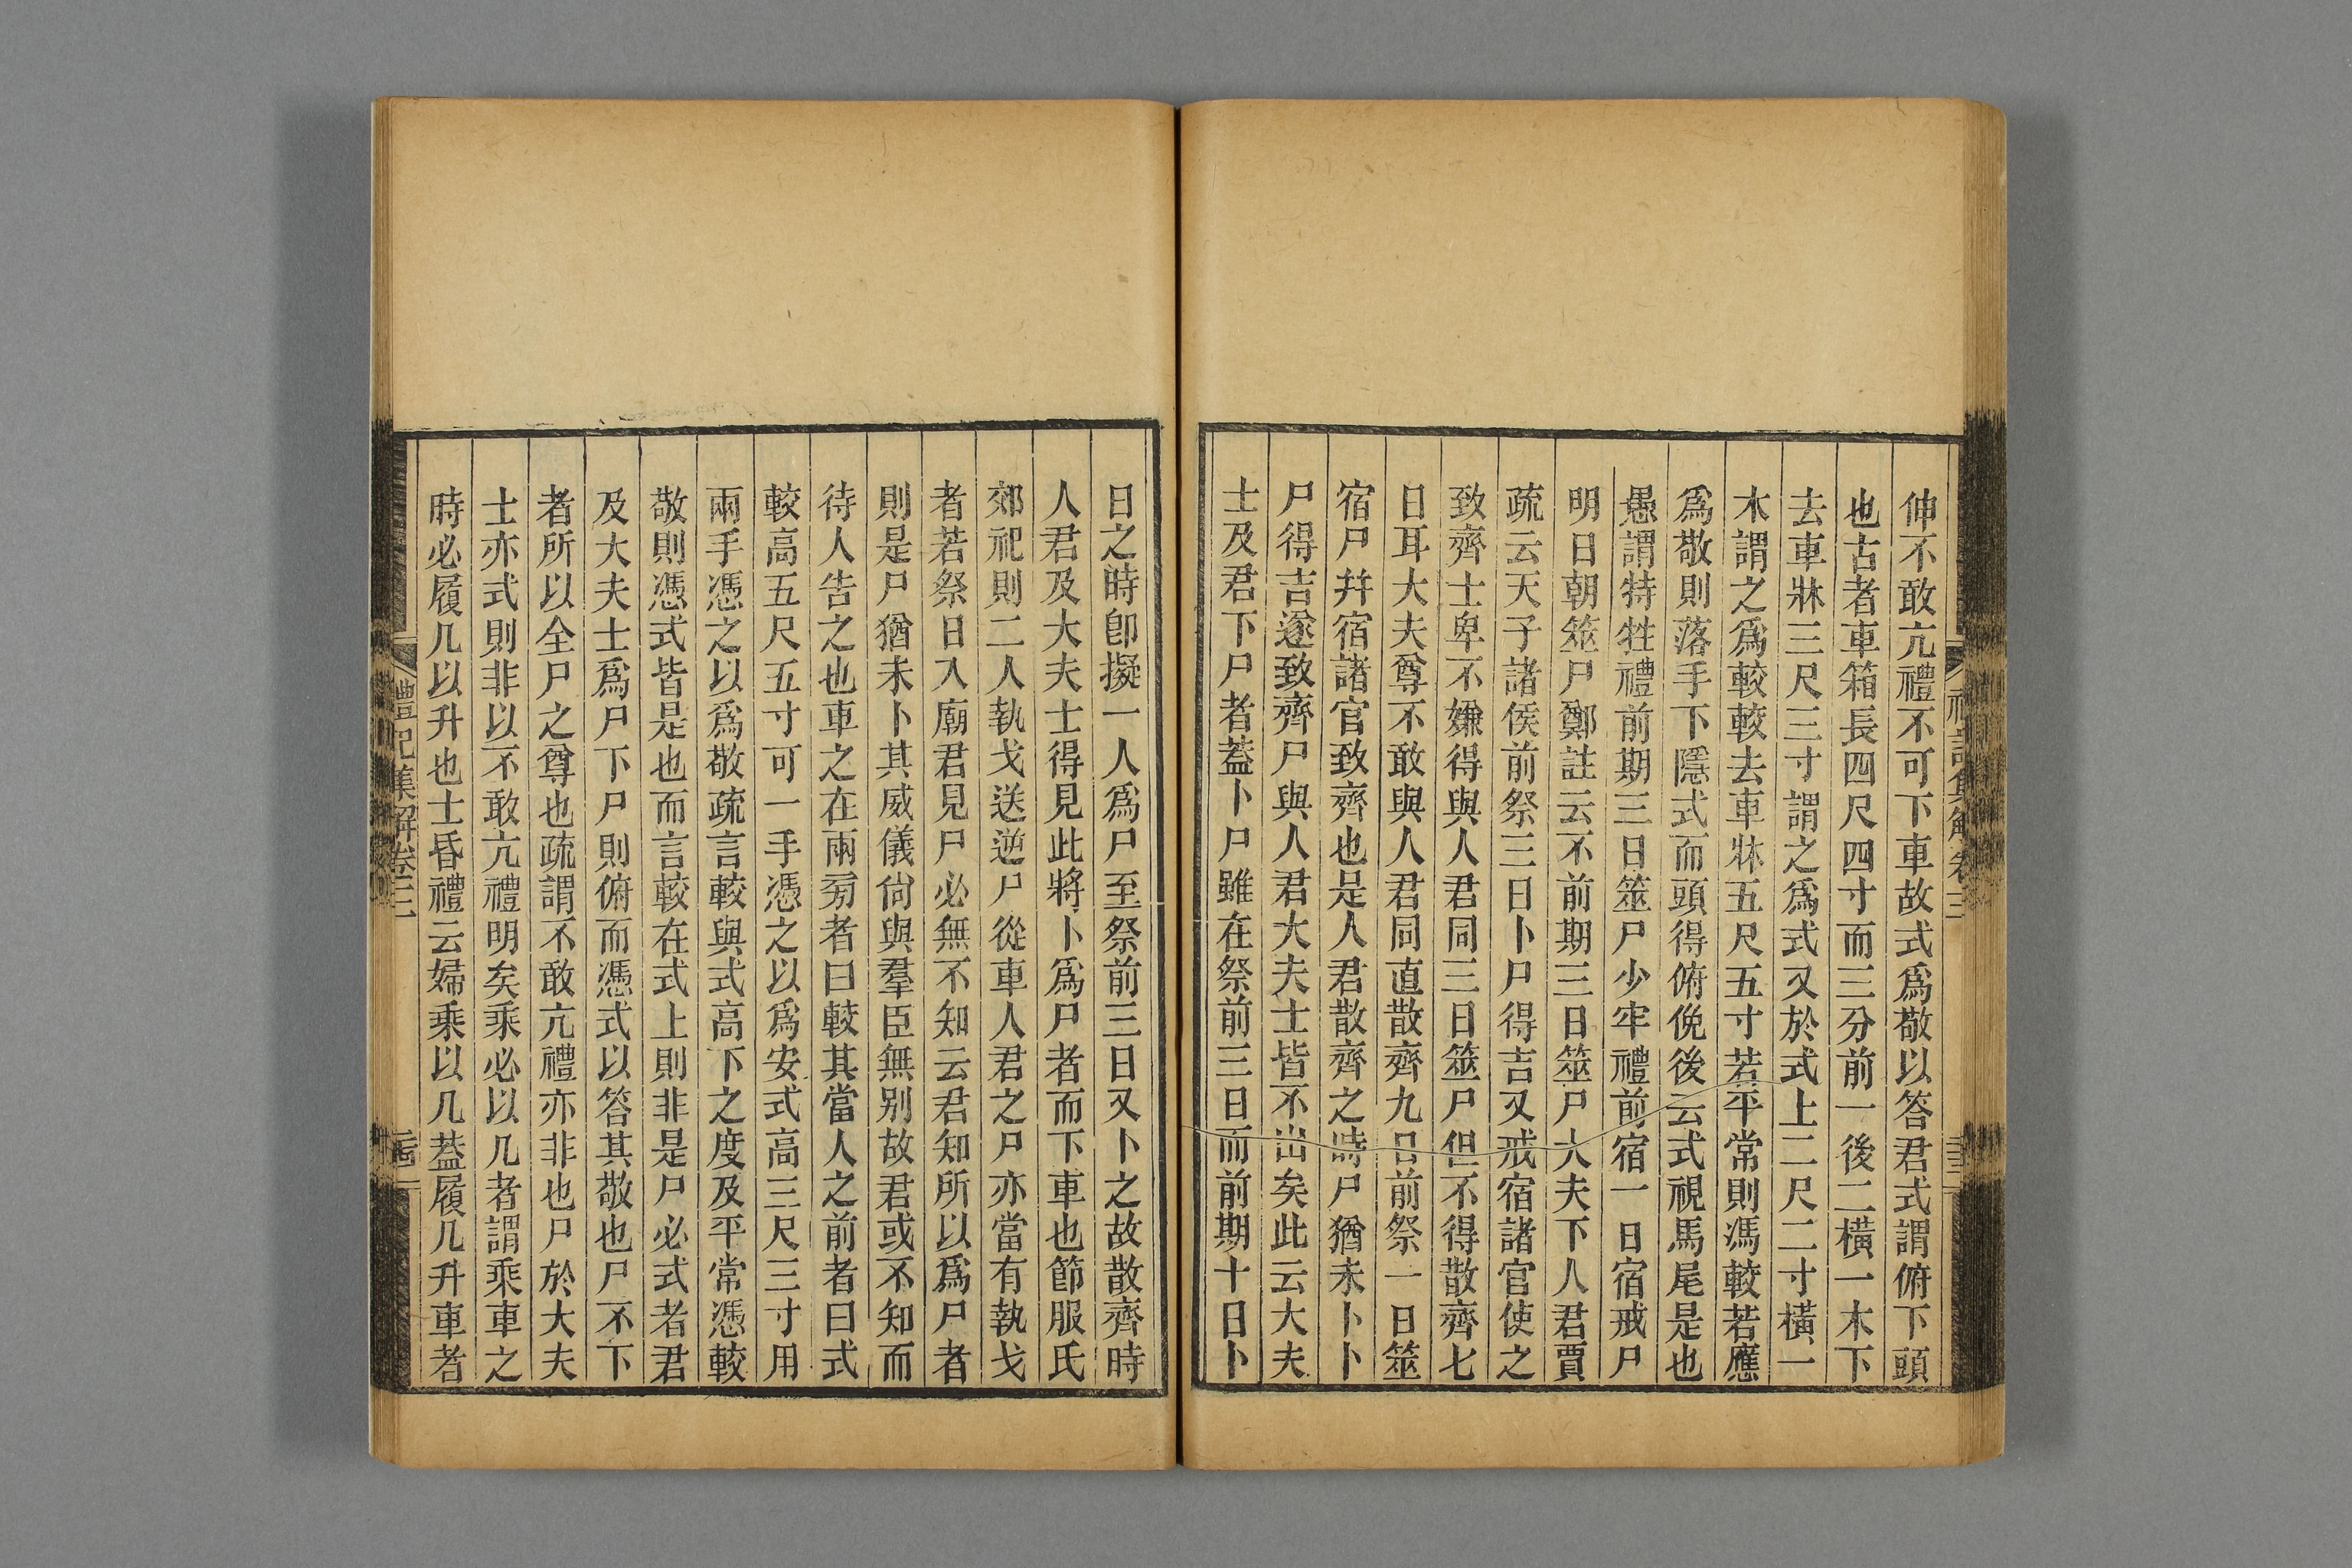 伸不敢亢禮不可下車故式爲敬以答君式謂俯下頭
也古者車箱長四尺四寸而三分前一後二橫一木下
去車牀三尺三寸謂之爲式又於式上二尺二寸橫一
木謂之爲較較去車牀五尺五寸若平常則馮較若應
爲敬則落手下隱式而頭得俯俛後云式視馬尾是也
愚謂特牲禮前期三日筮尸少牢禮前宿一日宿戒尸
明日朝筮尸鄭註云不前期三日筮尸大夫下人君賈
疏云天子諸侯前祭三日卜尸得吉又戒宿諸官使之
致齊士卑不嫌得與人君同三日筮尸但不得散齊七
日耳大夫尊不敢與人君同直散齊九日前祭一日筮
宿尸幷宿諸官致齊也是人君散齊之時尸猶未卜卜
尸得吉遂致齊尸與人君大夫士皆不出矣此云大夫
士及君下尸者蓋卜尸雖在祭前三日而前期十日卜
日之時卽擬一人爲尸至祭前三日又卜之故散齊時
人君及大夫士得見此將卜爲尸者而下車也節服氏
郊祀則二人執戈送逆尸從車人君之尸亦當有執戈
者若祭日入廟君見尸必無不知云君知所以爲尸者
則是尸猶未卜其威儀尙與羣臣無别故君或不知而
待人告之也車之在兩旁者曰較其當人之前者曰式
較高五尺五寸可一手憑之以爲安式高三尺三寸用
兩手憑之以爲敬疏言較與式高下之度及平常憑較
敬則憑式皆是也而言較在式上則非是尸必式者君
及大夫士爲尸下尸則俯而憑式以答其敬也尸不下
者所以全尸之尊也疏謂不敢亢禮亦非也尸於大夫
士亦式則非以不敢亢禮明矣乘必以几者謂乘車之
時必履几以升也士昏禮云婦乘以几蓋履几升車者
禮記集解卷三